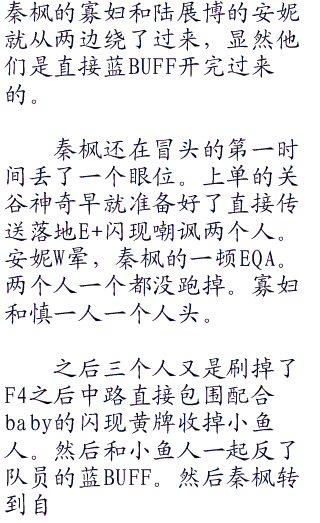 秦枫的寡妇和陆展博的安妮
就从两边绕了过来，显然他
们是直接蓝BUFF开完过来
的。
秦枫还在冒头的第一时
间丢了一个眼位。上单的关
谷神奇早就准备好了直接传
送落地E+闪现嘲讽两个人。
安妮W晕，秦枫的一顿EQA。
两个人一个都没跑掉。寡妇
和慎一人一个人头。
之后三个人又是刷掉了
F4之后中路直接包围配合
baby的闪现黄牌收掉小鱼
人。然后和小鱼人一起反了
队员的蓝BUFF。然后秦枫转
到自